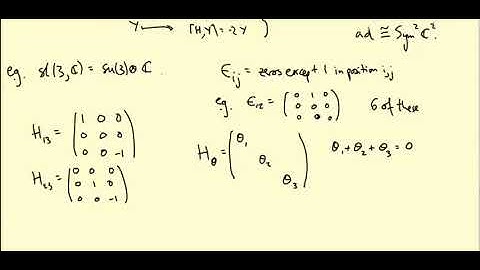 Y ⟼ [H,Y]=-2Y
ad ≅ Sym² ℂ².
e.g. sl(3,ℂ) = su(3)⊗ℂ.
E_ij = zeros except 1 in position i,j
e.g. E_12 = ( 0 1 0 / 0 0 0 / 0 0 0 ) 6 of these
H_13 = ( 1 0 0 / 0 0 0 / 0 0 -1 )
H_θ = ( θ_1 / θ_2 / θ_3 ) θ_1+θ_2+θ_3=0
H_23 = ( 0 0 0 / 0 1 0 / 0 0 -1 )